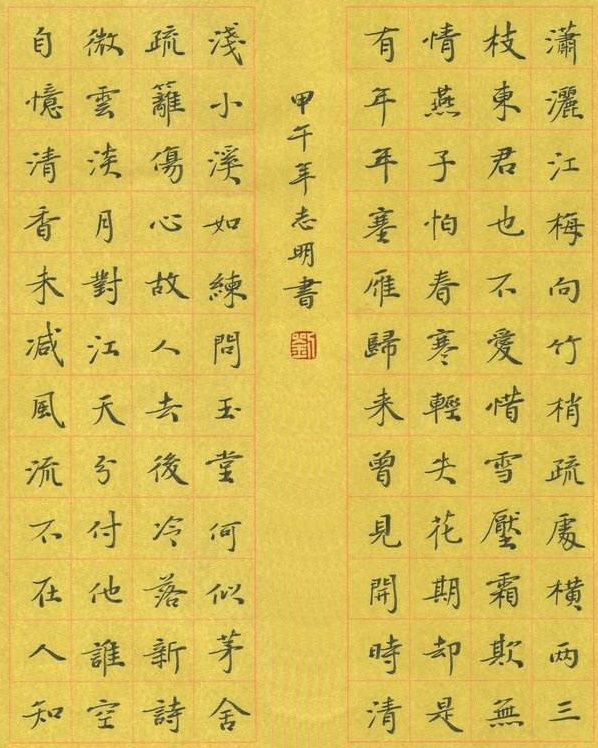 瀟灑江梅向竹梢疏處橫两三
枝東君也不愛惜雪壓霜欺無
情燕子怕春寒輕失花期却是
有年年塞雁歸来曾見開時清
淺小溪如練問玉堂何似茅舍
疏籬傷心故人去後冷落新詩
微雲淡月對江天分付他誰空
自憶清香未減風流不在人知
甲午年志明書
劉